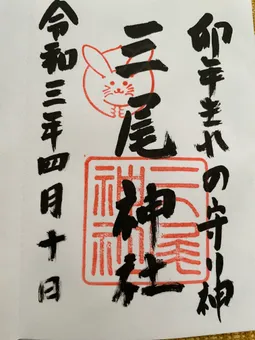 卯年生れの守り神
三尾神社
三尾神社
令和三年四月十日